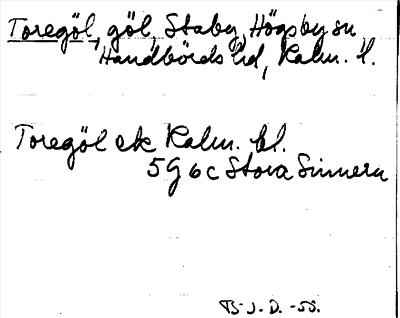 Toregöl, göl, Staby, Högsby sn
Handbörds hd, Kalm. l.
Toregöl ek Kalm. bl.
5G 6c Stora Sinnern